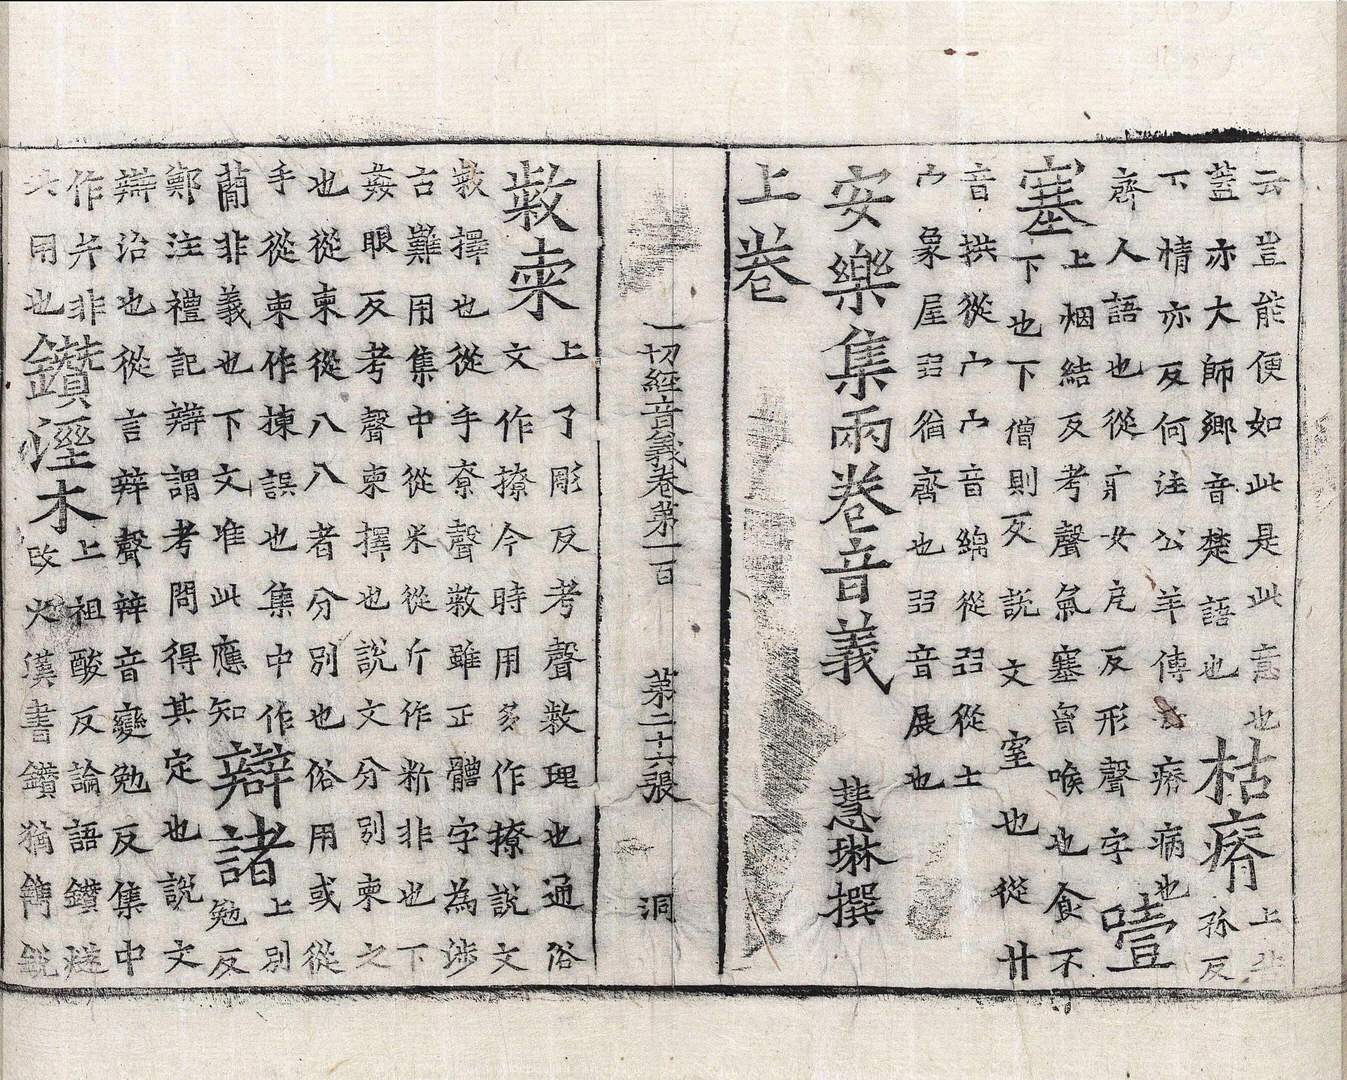 云豈能便如此是此意也枯瘠上
蓋亦大師鄉音楚語也孫反
下情亦反何注公羊傳瘠病也
齊人語也從疒女戹反形聲字噎
塞上烟結反考聲氣塞窅喉也食不
下也下僧則反說文窒也從廾
音拱從宀宀音綿從㠭從土
宀象屋㠭猶齊也㠭音展也
安樂集兩卷音義 慧琳撰
上卷
一切經音義卷第一百 第二十六張 洞
敹柬上了彫反考聲敹理也通俗
文作撩今時用多作撩說文
敹擇也從手尞聲敹雖正體字為涉
古難用集中從米從斤作斯非也下
姦眼反考聲柬擇也說文分別柬之
也從束從八八者分別也俗用或從
手從東作揀誤也集中作
蕑非義也下文准此應知辯諸上別
勉反
鄭注禮記辯謂考問得其定也說文
辯治也從言辡聲辡音變勉反集中
作㸤非也鑽溼木上祖酸反論語鑽燧
改火漢書鑽猶鐫鋭